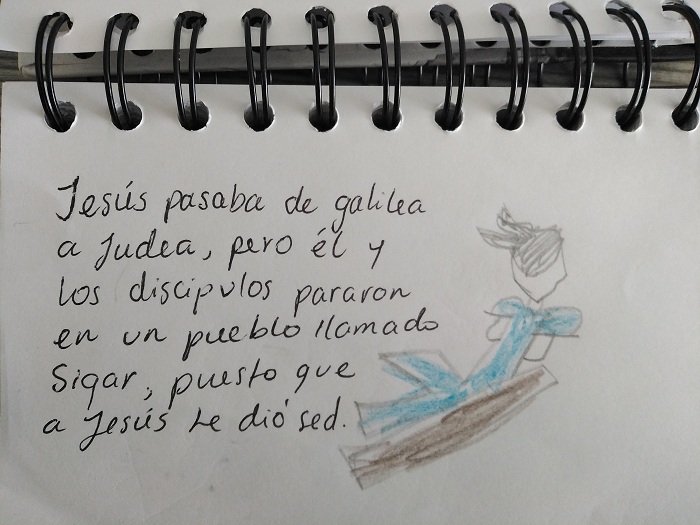 Jesús pasaba de galilea
a Judea, pero él y
los discipulos pararon
en un pueblo llamado
Sigar, puesto que
a Jesús le dió sed.